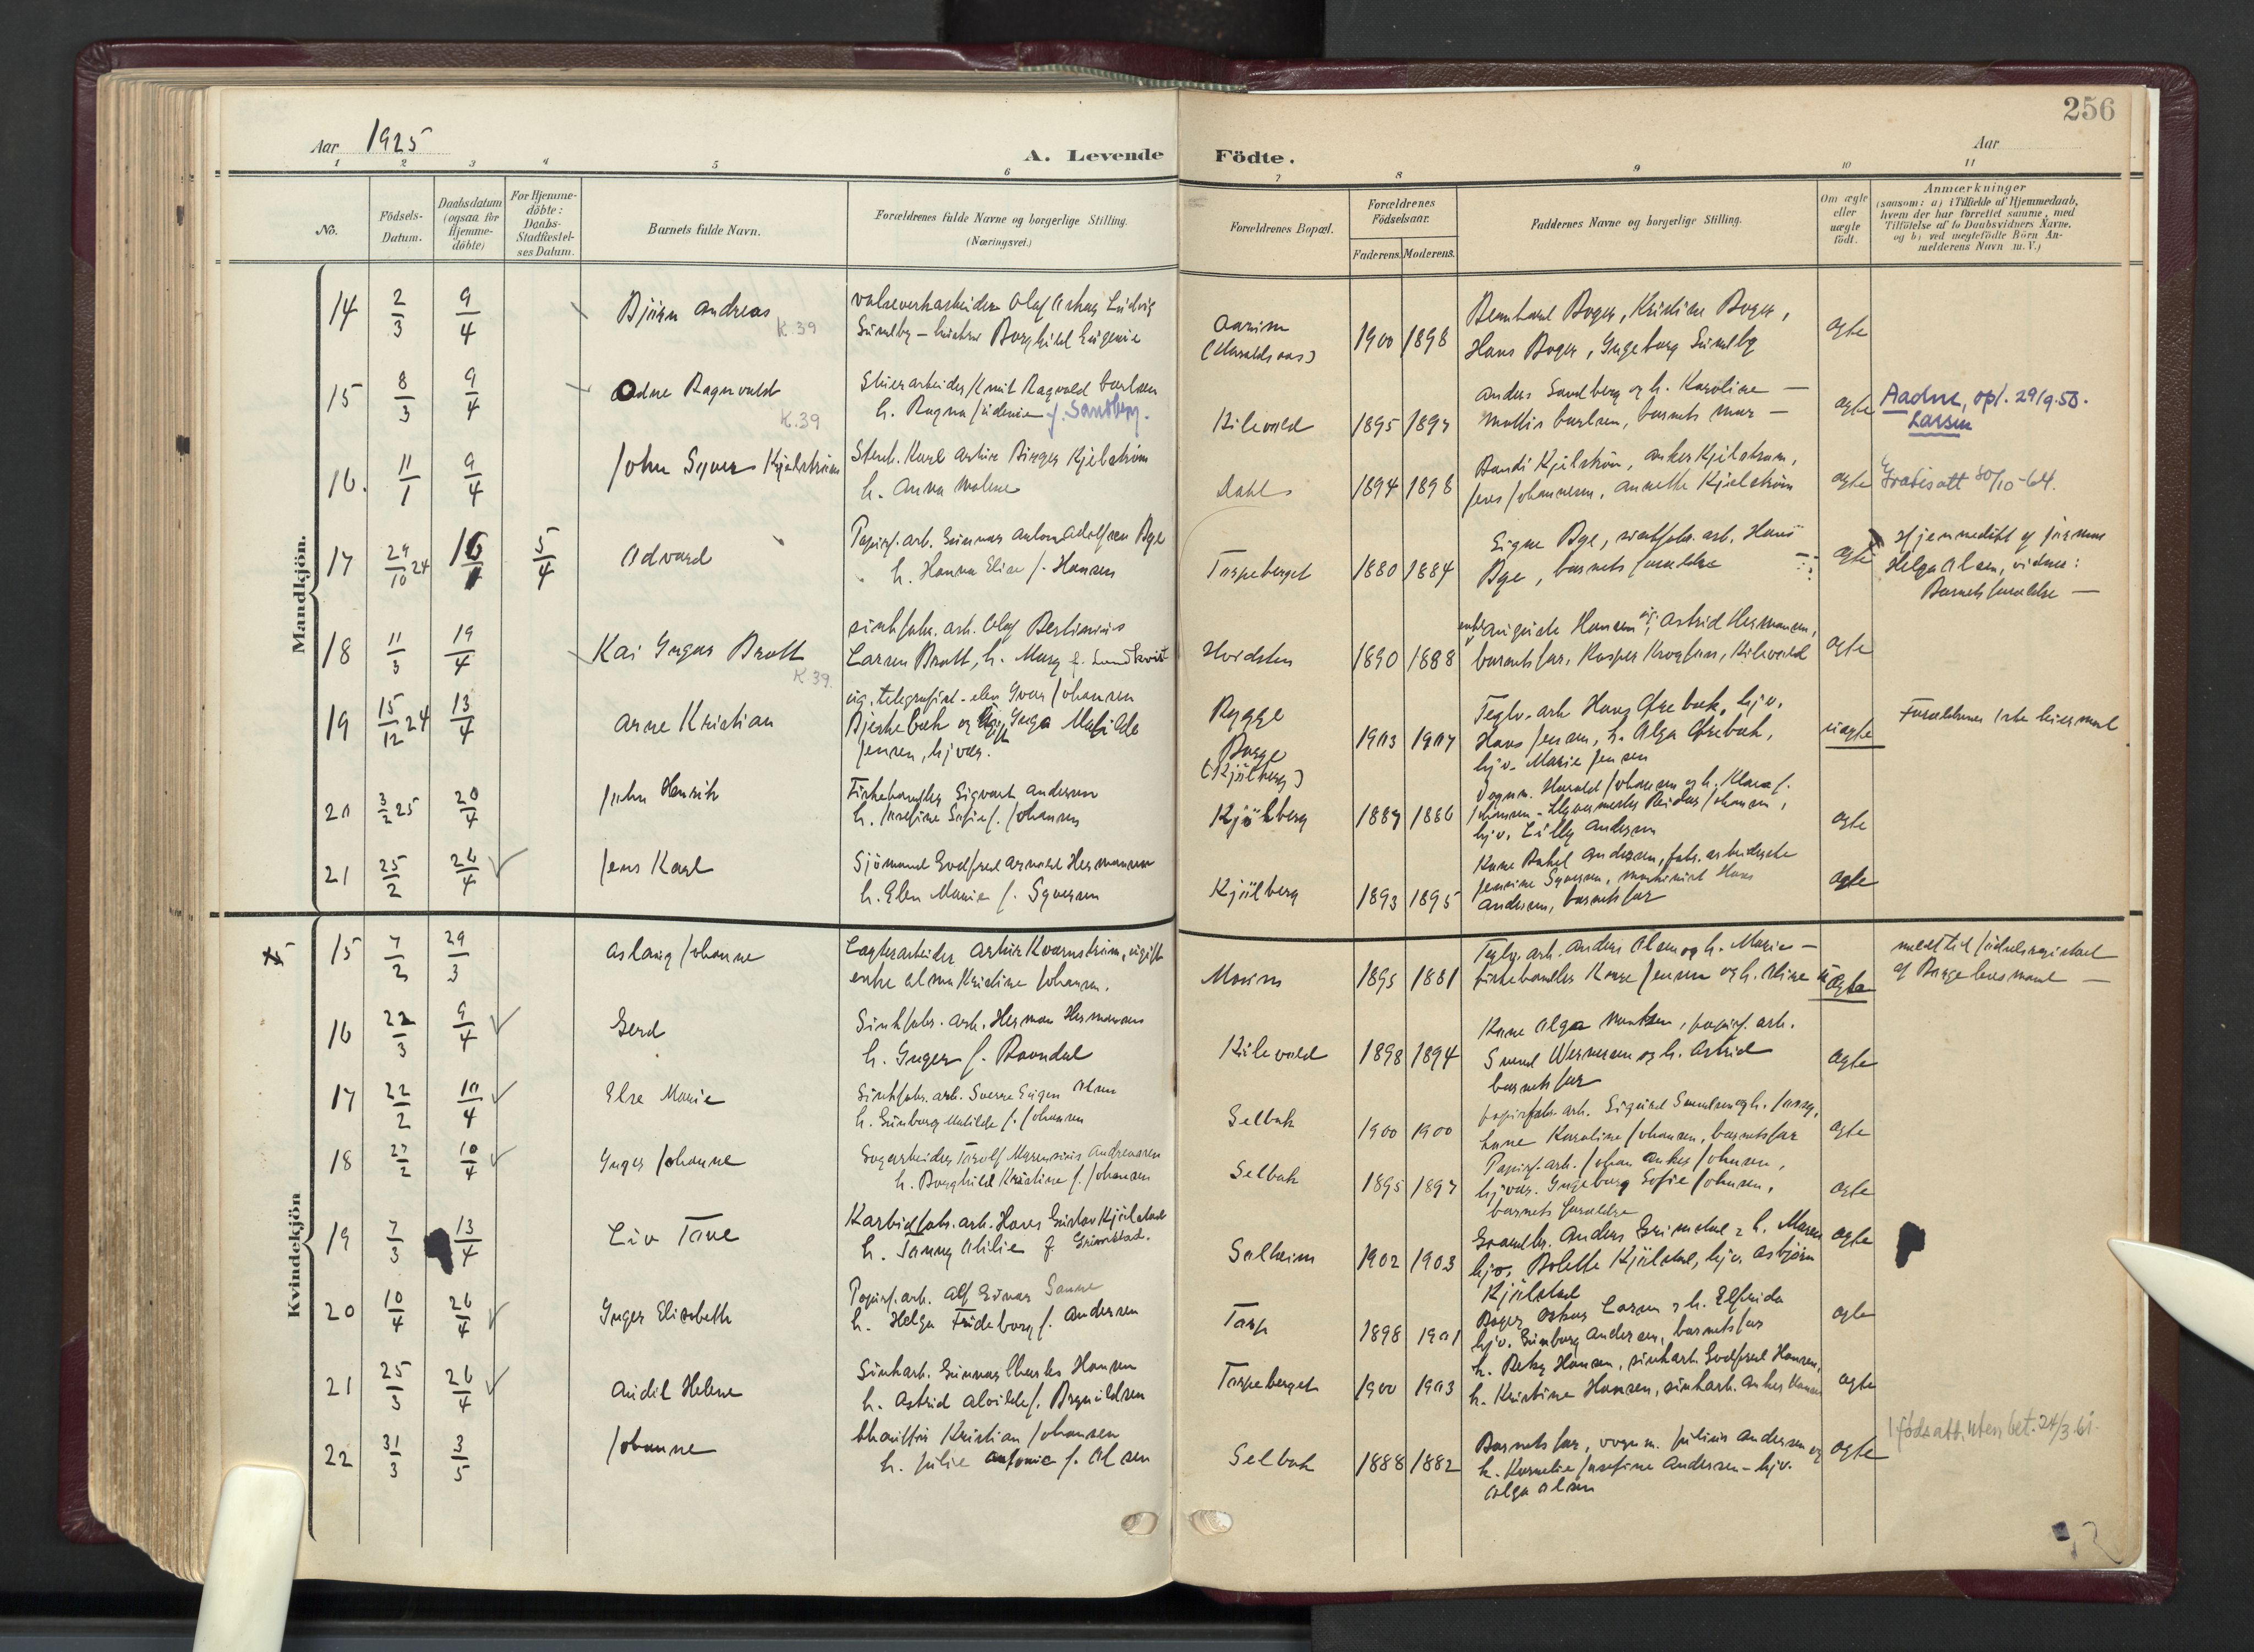 256
Aar 1925
Aar
A. Levende Födte.
1 2 3 4 5 6 7 8 9 10 11
No.
Födsels-
Datum.
Daabsdatum
(ogsaa for
Hjemme-
döbte)
For Hjemme-
döbte:
Daabs-
Stadfæstel-
ses Datum.
Barnets fulde Navn.
Forældrenes fulde Navne og borgerlige Stilling.
(Næringsvei.)
Forældrenes Bopæl.
Forældrenes
Födselsaar.
Faderens. Moderens.
Faddernes Navne og borgerlige Stilling.
Om ægte
eller
uægte
födt.
Anmærkninger
(saasom: a) i Tilfælde af Hjemmedaab,
hvem der har forrettet samme, med
Tilföielse af to Daabsvidners Navne,
og b) ved uægtefödte Börn An-
melderens Navn m. V.)
Mandkjön.
14 2/3 9/4 Björn Andreas K.39
Borghild Eugenie
1900 1898
Hans Boger, Ingeborg
ægte
15 8/3 9/4 Odne Ragnvald K.39
h. Ragna f. Sandberg.
Kilevold 1895 1897
Anders Sandberg og h. Karoline —
barnets mor —
ægte
Aadne, opl. 29/9.50.
Larsen
16. 11/1 9/4 John Syver Kjelström
Karl Artur Birger Kjelström
h. Anna Malene
Dahls 1894 1898
Anker Kjelström,
Jens Johannesen, Annette Kjelström
ægte
Gratisatt 30/10-64.
17 29/10 24 5/4 Edvard
Papirf. arb. Gunnar Anton Adolfsen Bye
h. Hanna Elise f. Hansen
Torpeberget 1880 1884
Signe Bye, arb. Hans
Bye, barnets forældre
ægte
Hjemmedöbt af
Helga Olsen, vidner:
Barnets forældre —
18 11/3 19/4 Kai Ingar Bratt K 39.
Larsen Bratt, h. Mary f. Lundkvist
Hvidsten 1890 1888
Auguste Hansen, Astrid Hermansen,
barnets far, Kasper Krogfoss, Kilevold
ægte
19 15/12 24 13/4 Arne Kristian
ug. telegrafist-elev Ivar Johansen
Bjerkebæk og Inga Matilde
Jensen, hjvær.
Rygge
Borge
(Kjölberg)
1903 1907
Hans Jensen, h. Olga
hjv. Marie Jensen
uægte
20 3/2 25 20/4 John Henrik
Fiskehandler Sigvart Andersen
h. Josefine Sofie f. Johansen
Kjölberg 1887 1886
Vognm. Harald Johansen og h. Klara f.
Johansen - Reidar Johansen,
hjv. Lilly Andersen
ægte
21 25/2 26/4 Jens Karl
Sjömand Godfred Arnold Hermansen
h. Elen Marie f. Syversen
Kjölberg 1893 1895
Kone Rakel Andersen, fabr. arbeiderske
Jensine Syversen, maskinist Hans
Andersen, barnets far
ægte
Kvindekjön
15 7/2 29/3 Aslaug Johanne
Lagterarbeider Artur Kvarnström, ugift
enke Alma Kristine Johansen.
Moum 1895 1881
Teglv. arb. Anders Olsen og h. Marie —
fiskehandler Jensen og h. Oline
uægte
meldt til födselsregistret
af Borge lensmand —
16 22/3 9/4 Gerd
Sinkfabr. arb. Herman Hermansen
h. Inger f. Ravndal
Kilevold 1898 1894
Kone Olga Madsen, papirf. arb.
Svend Wernersen og h. Astrid
barnets far
ægte
17 22/2 10/4 Else Marie
Sinkfabr. arb. Sverre Eugen Olsen
h. Gunborg Matilde f. Johansen
Selbak 1900 1900
papirfabr. arb. Sigurd Svendsen og h. Jenny,
kone Karoline Johansen, barnets far
ægte
18 27/2 10/4 Inger Johanne
Torolf Marensius Andreassen
h. Borghild Kristine f. Johansen
Selbak 1895 1897
Papirf. arb. Johan Anker Johnsen,
hjvær. Ingeborg Sofie Johnsen,
barnets forældre
ægte
19 7/3 13/4 Liv Tove
Karbidfabr. arb. Hans Gustav Kjölstad
h. Fanny Otilie f. Grimstad.
Solheim 1902 1903
Anders Grimstad & h. Maren
hjv. Bolette Kjölstad, hjv. Asbjörn
Kjölstad
ægte
20 10/4 26/4 Inger Elisabeth
Papirf. arb. Alf Einar Sanne
h. Helga Frideborg f. Andersen
Torp 1898 1901
Oskar Larsen & h. Elfrida
hjv. Gunborg Andersen, barnets far
ægte
21 25/3 26/4 Audil Helene
Sinkarb. Gunnar Charles Hansen
h. Astrid Alvilde f. Brynildsen
Torpeberget 1900 1903
h. Betzy Hansen, sinkarb. Godfred Hansen,
h. Kristine Hansen, sinkarb. Anker Hansen
ægte
22 31/3 3/5 Johanne
Chauffør Kristian Johansen
h. Julie Antonie f. Olsen
Selbak 1888 1882
Barnets far, vogn m. Julius Andersen og
h. Kornelie Josefine Andersen - hjv.
Olga Olsen
ægte
1 föds. att. uten bet. 24/3.61.